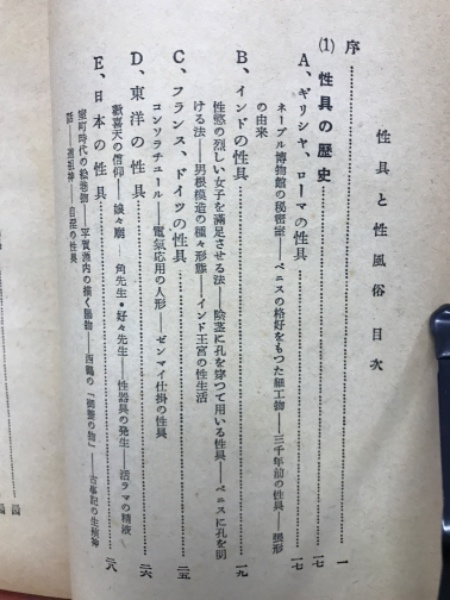 性具と性風俗 目次
序……………一
(1) 性具の歴史……………一七
A、ギリシヤ、ローマの性具……………一七
ネーブル博物館の秘密室――ペニスの格好をもつた細工物――三千年前の性具――張形
の由来
B、インドの性具……………一九
性慾の烈しい女子を満足させる法――陰茎に孔を穿つて用いる性具――ペニスに孔を開
ける法――男根模造の種々形態――インド王宮の性生活
C、フランス、ドイツの性具……………二五
コンソラチュール――電気応用の人形――ゼンマイ仕掛の性具
D、東洋の性具……………二六
歓喜天の信仰――娘々廟――角先生・好々先生――性器具の発生――活ラマの精液
E、日本の性具……………二八
室町時代の絵巻物――平賀源内の描く陽物――西鶴の「御養の物」――古事記の生殖神
話――道祖神――自涜の性具